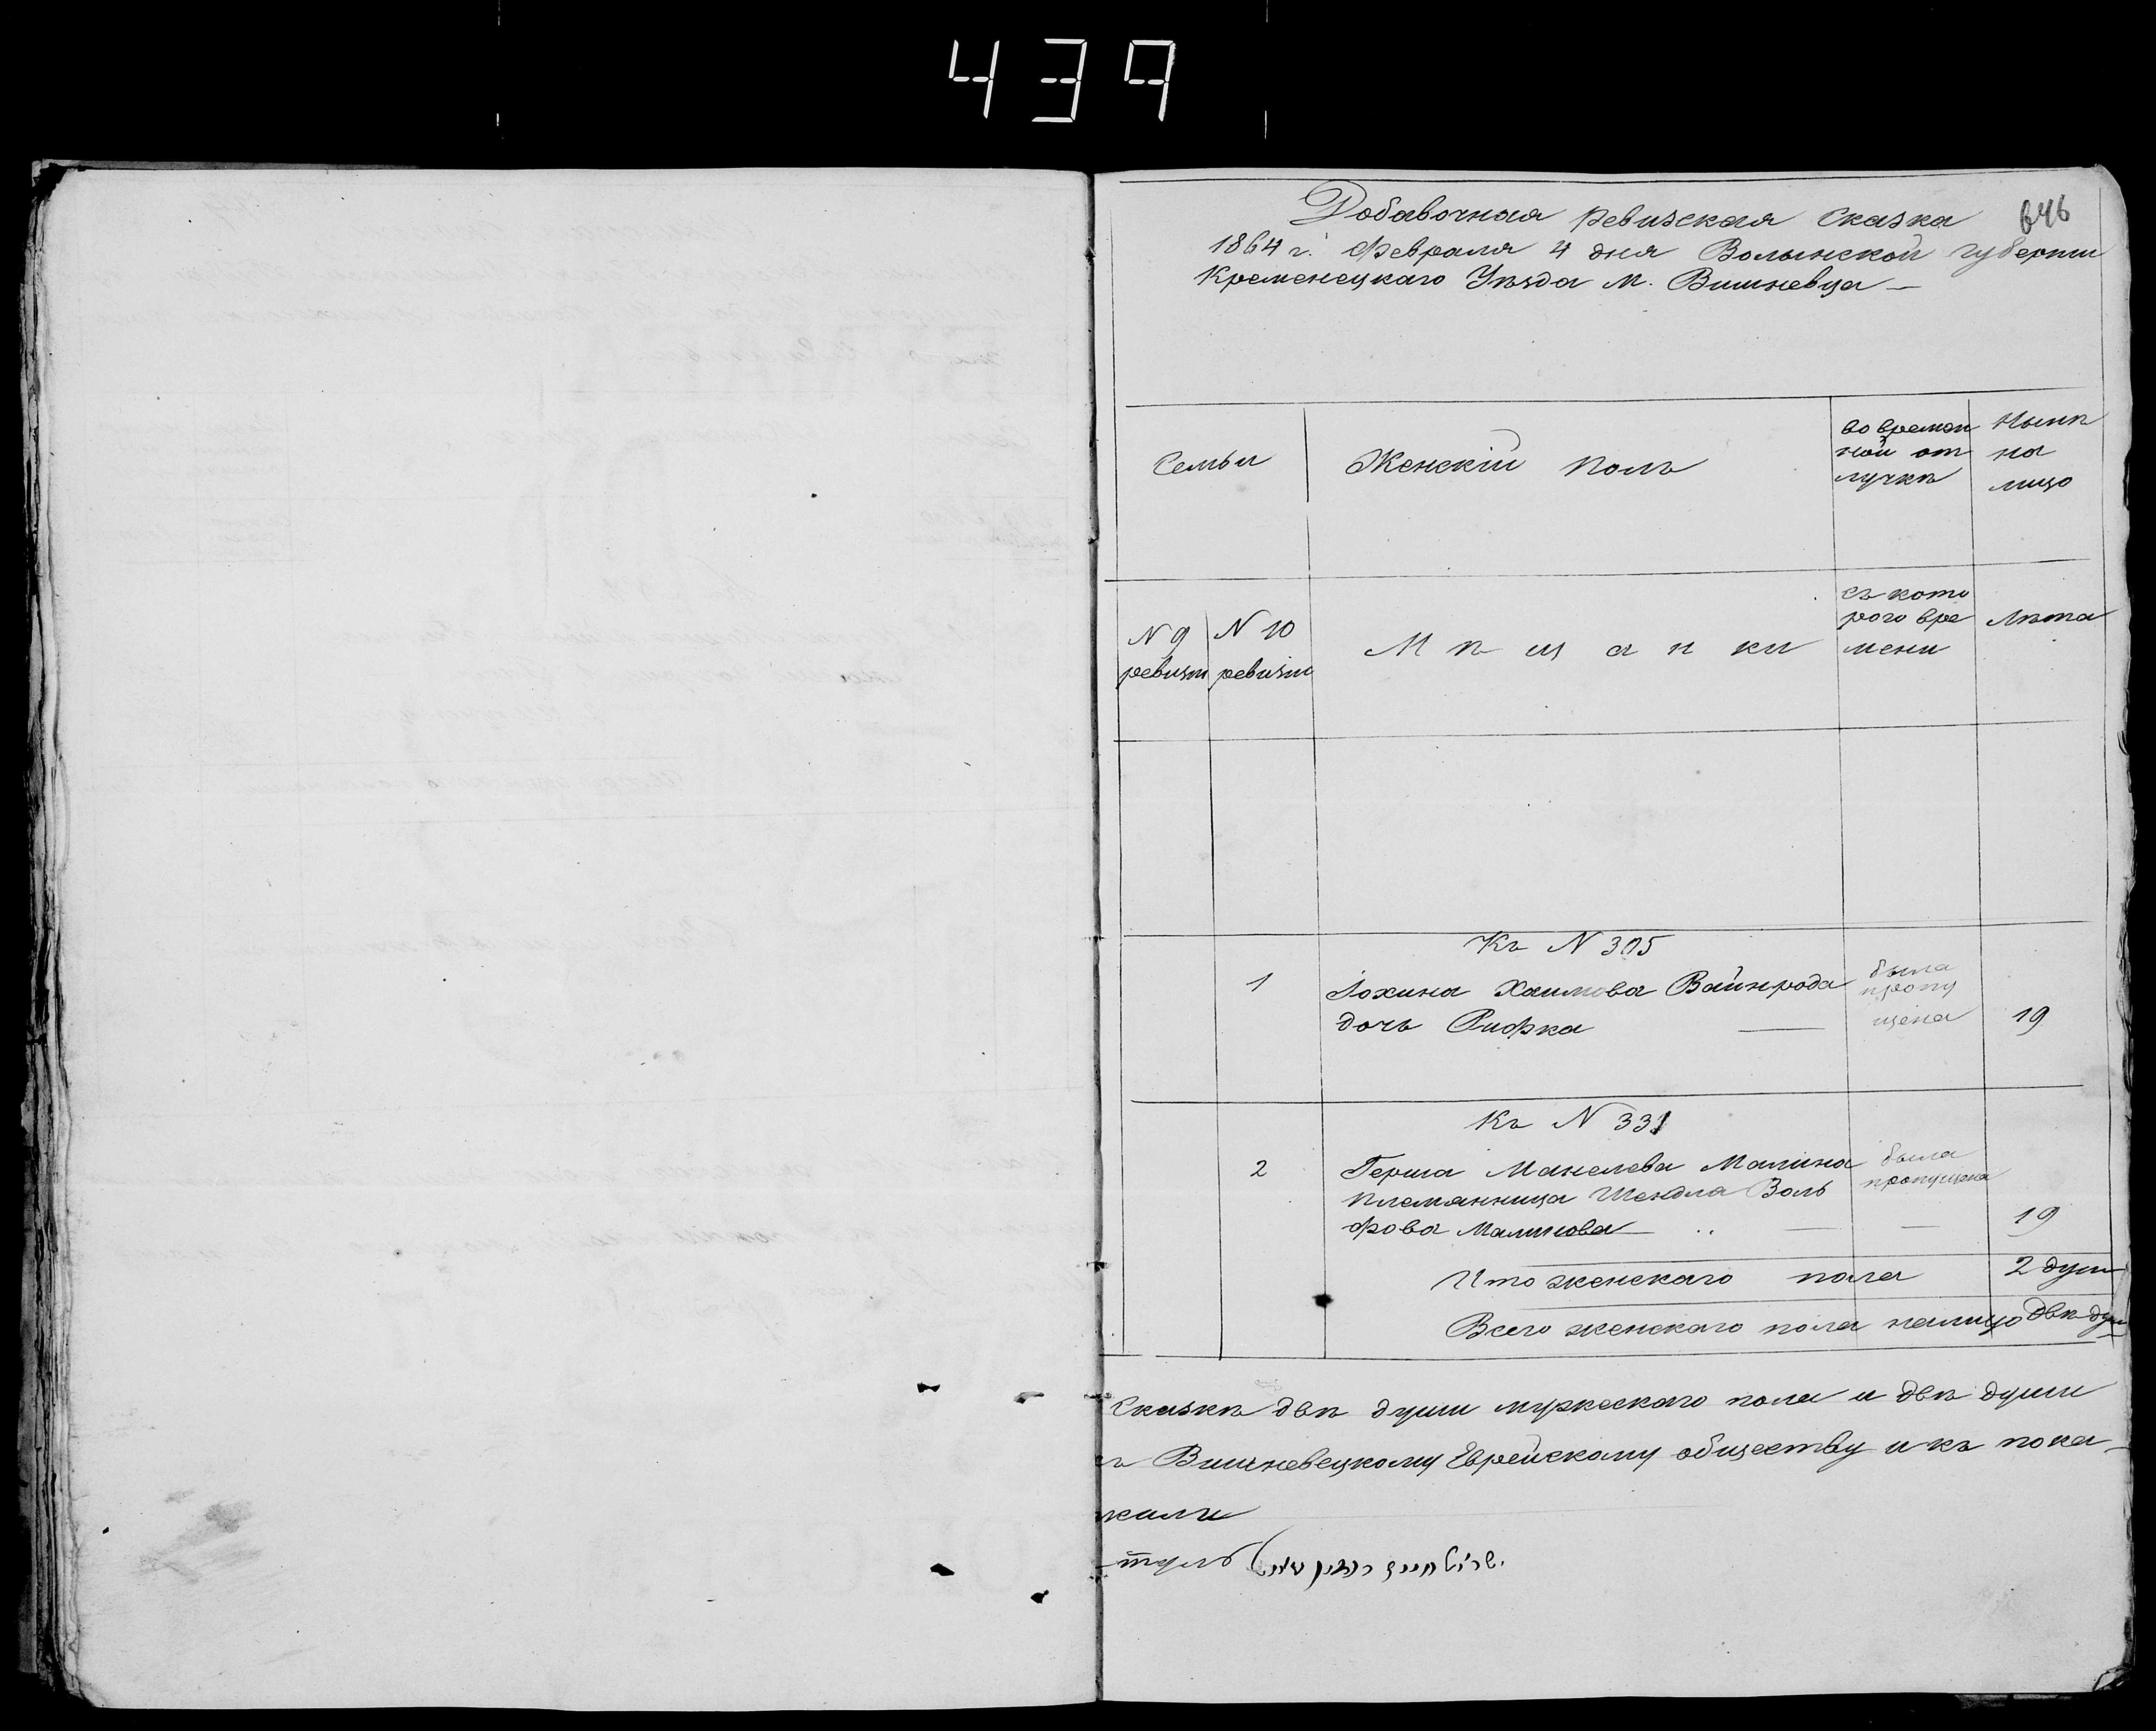 439
646
Добавочная ревизская сказка
1864 г. Февраля 4 дня Волынской губернии
Кременецкаго Уѣзда м. Вишневца —
Семьи
Женскій полъ
во времен
ной от
лучкѣ
Нынѣ
на
лицо
N 9
ревизіи
N 10
ревизіи
Мѣщанки
съ кото
рого вре
мени
Лѣта
Къ N 305
1 Іохина Хаимова Вайнрода была
пропу
дочь Рифка — щена 19
Къ N 331
2 Герша Манелева Малина была
племянница Шендла Воль пропущена
фова Малинова — — — 19
Итo женскаго пола 2 души
Всего женскаго пола налицо двѣ души
Сказкѣ двѣ души мужескаго пола и двѣ души
съ Вишневецкому Еврейскому обществу и къ пока-
жали